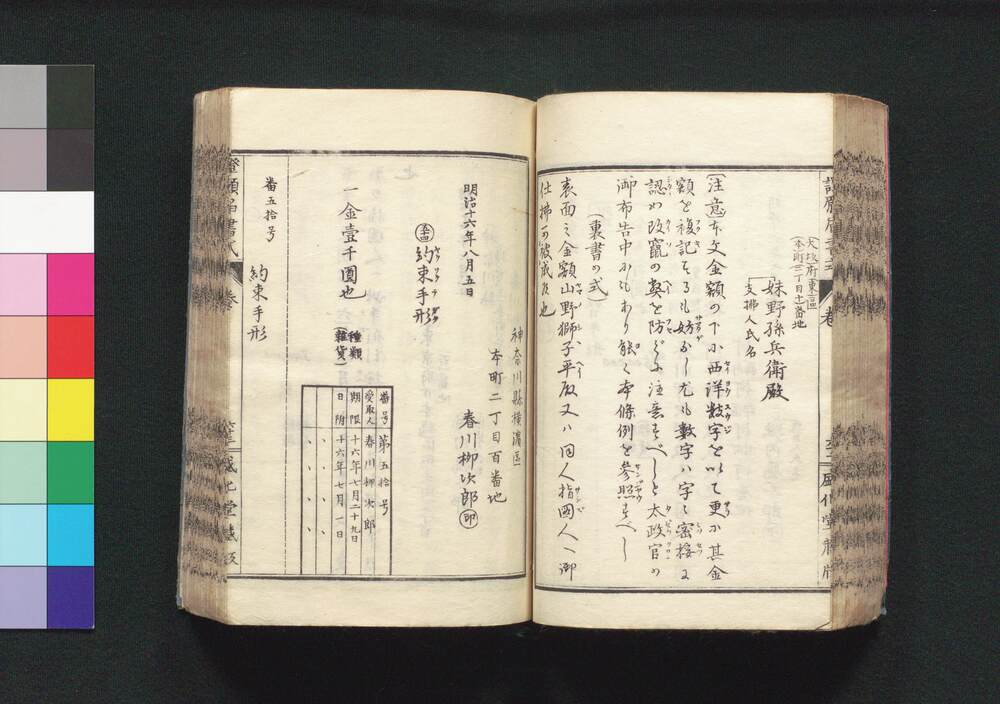 大坂府東區
本町三丁目十一番地
妹野孫兵衛殿
支拂人氏名
(注意)本文金額の下に西洋數字を以て更に其金
額を複記するも妨なし尤も數字ハ字々密接に
認め改竄の弊を防ぐに注意すべしと太政官の
御布告中にもあり能く本條例を參照すべし
(裏書の式)
表面之金額山野獅子平殿又ハ同人指圖人へ御
仕拂可被成候也
神奈川縣横濱區
本町二丁目百番地
春川柳次郎 印
明治十六年八月五日
約束手形
一金壹千圓也
種類
(雜貨)
番号 第五拾号
受取人 春川柳次郎
期限 十六年七月二十九日
日附 十六年七月一日
番五拾号
約束手形